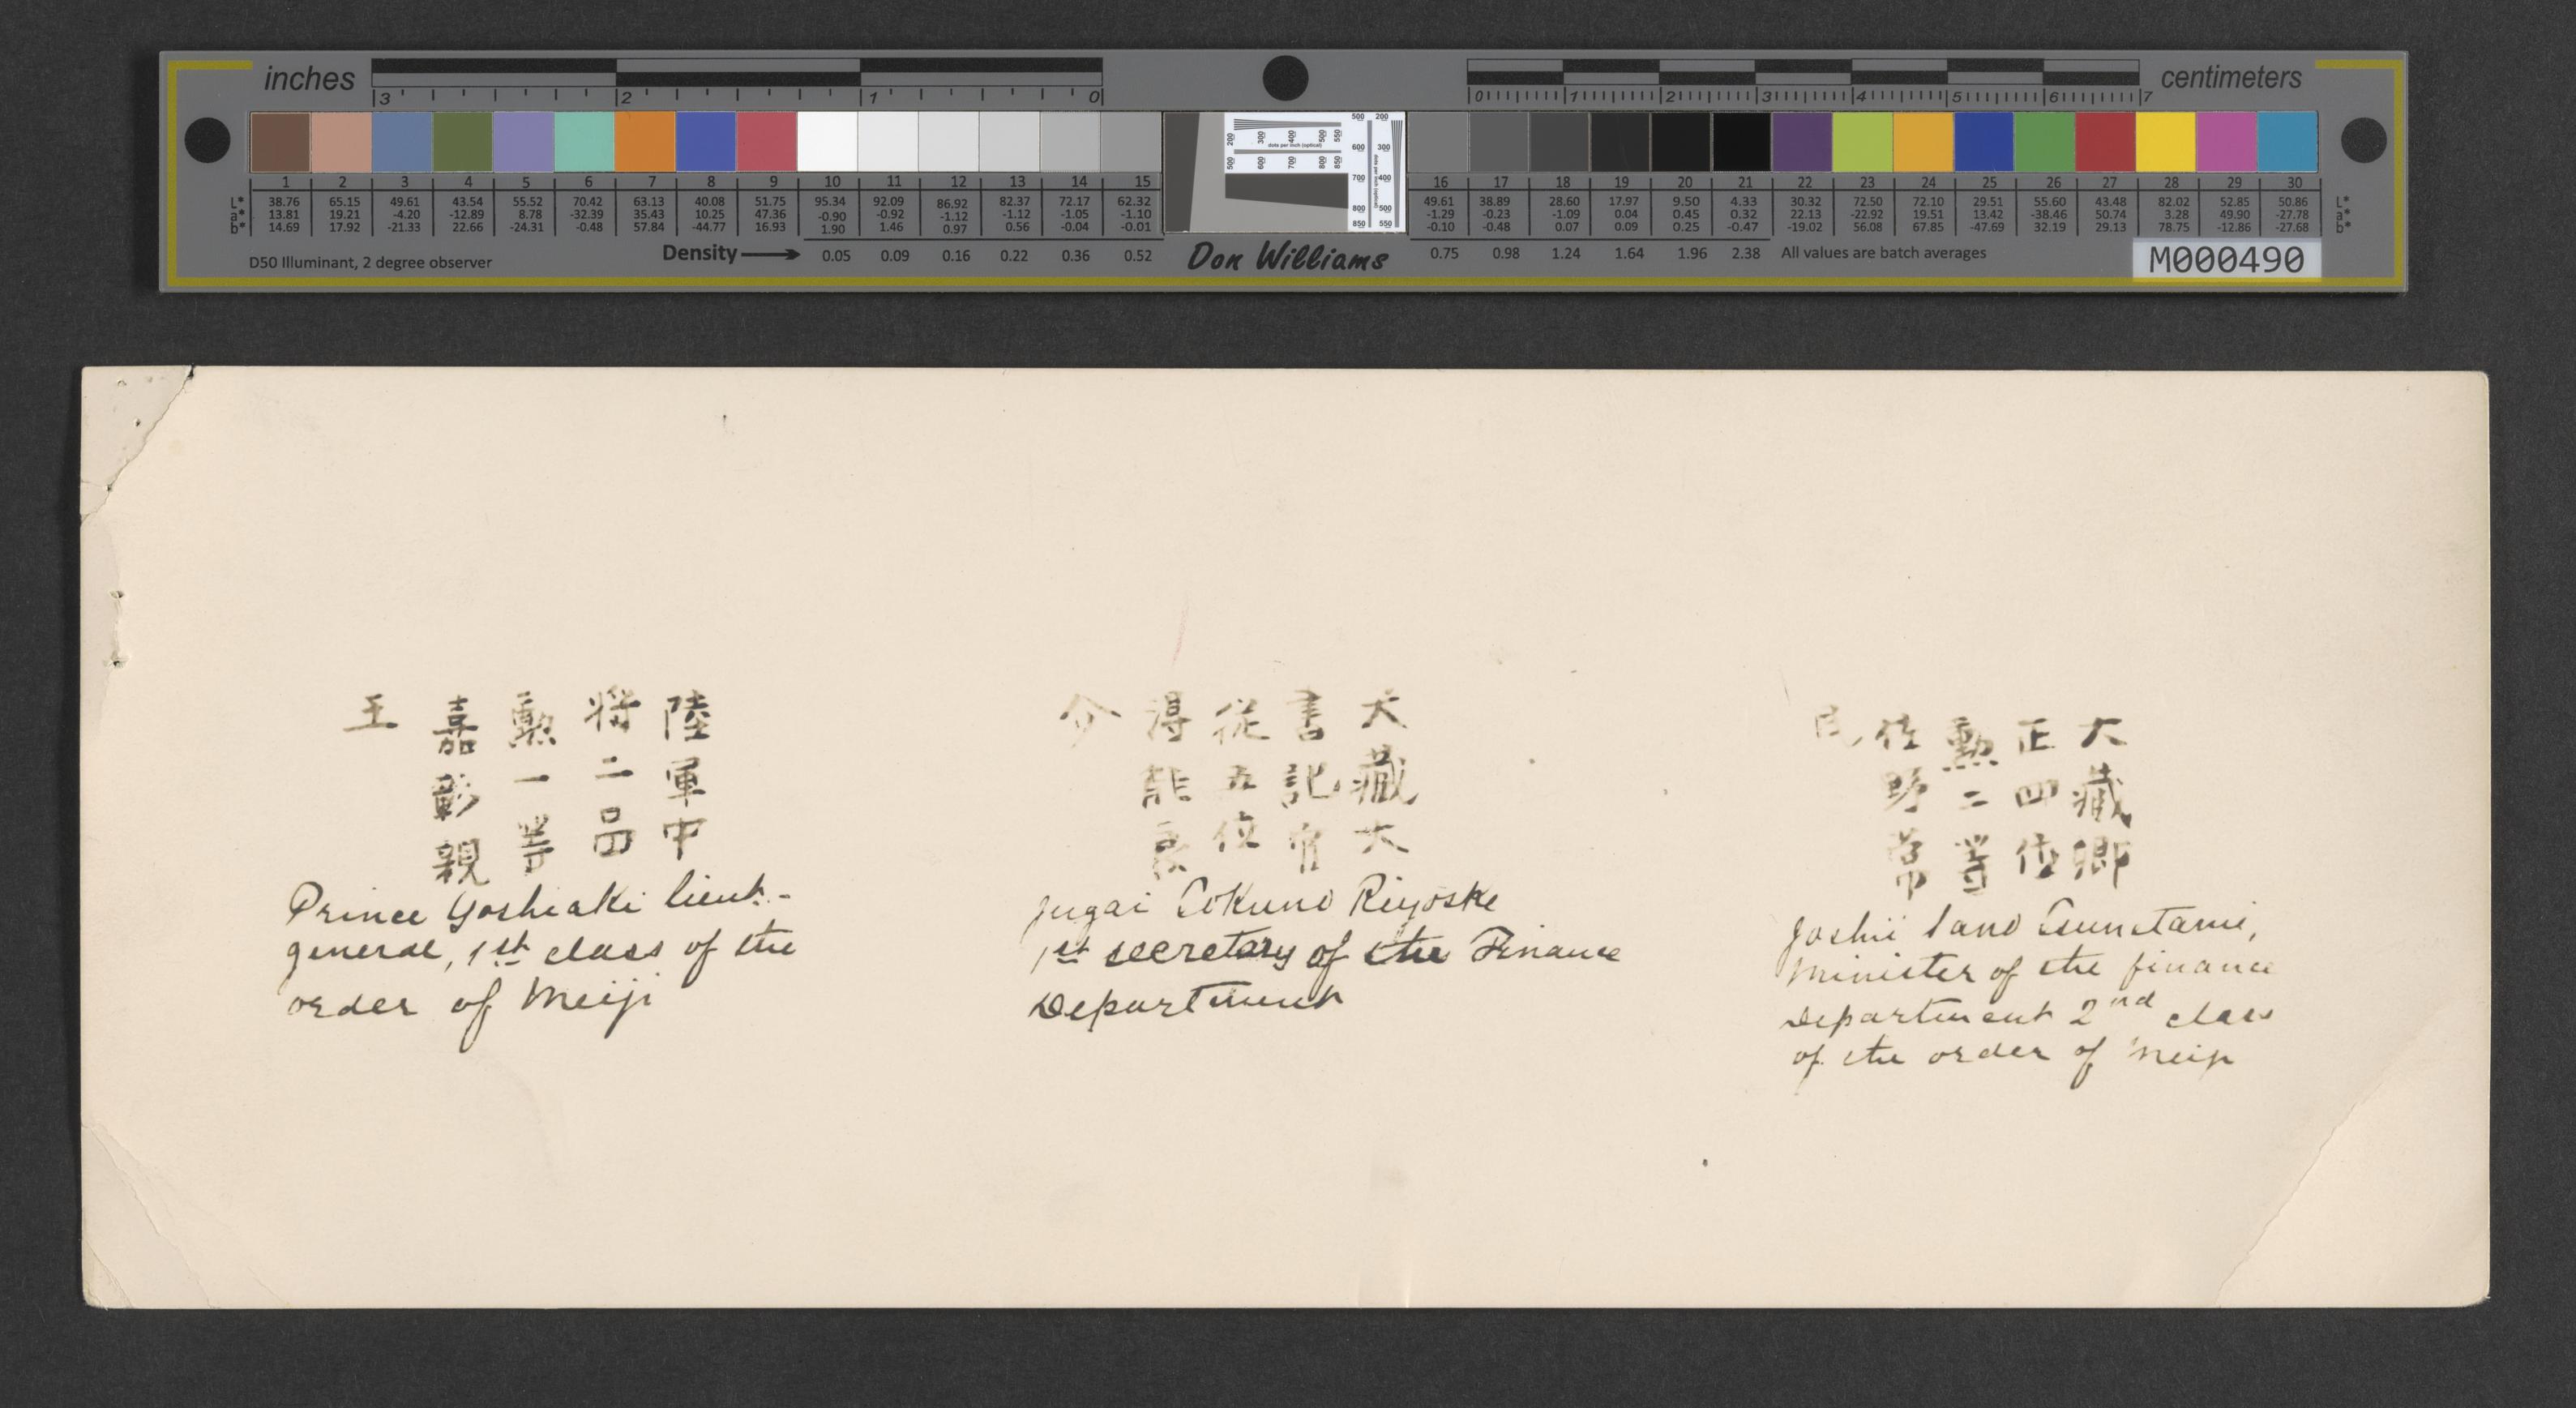 inches
3 2 1 0
0 1 2 3 4 5 6 7
centimeters
1 2 3 4 5 6 7 8 9 10 11 12 13 14 15
16 17 18 19 20 21 22 23 24 25 26 27 28 29 30
L* 38.76 65.15 49.61 43.54 55.52 70.42 63.13 40.08 51.75 95.34 92.09 86.92 82.37 72.17 62.32
a* 13.81 19.21 -4.20 -12.89 8.78 -32.39 35.43 10.25 47.36 -0.90 -0.92 -1.12 -1.12 -1.05 -1.10
b* 14.69 17.92 -21.33 22.66 -24.31 -0.48 57.84 -44.77 16.93 1.90 1.46 0.97 0.56 -0.04 -0.01
49.61 38.89 28.60 17.97 9.50 4.33 30.32 72.50 72.10 29.51 55.60 43.48 82.02 52.85 50.86 L*
-1.29 -0.23 -1.09 0.04 0.45 0.32 22.13 -22.92 19.51 13.42 -38.46 50.74 3.28 49.90 -27.78 a*
-0.10 -0.48 0.07 0.09 0.25 -0.47 -19.02 56.08 67.85 -47.69 32.19 29.13 78.75 -12.86 -27.68 b*
D50 Illuminant, 2 degree observer
Density 0.05 0.09 0.16 0.22 0.36 0.52
Don Williams
0.75 0.98 1.24 1.64 1.96 2.38 All values are batch averages
M000490
陸軍中
将二品
勲一等
嘉彰親
王
Prince Yoshiaki lieut.-
general, 1st class of the
order of Meiji
大藏大
書記官
從五位
得能良
介
Jugai Tokuno Riyoske
1st secretary of the Finance
Department
大藏卿
正四位
勲二等
佐野常
民
Joshii Sano Tsunetami,
Minister of the finance
Department 2nd class
of the order of Meiji